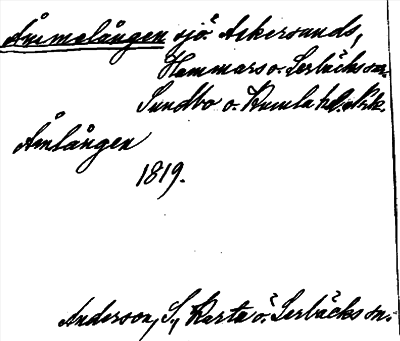 Åmmelången sjö Askersunds,
Hammars o. Lerbäcks sn.
Sundbo o. Kumla hd. Nrk.
Åmlången
1819.
Anderson, S., Karta ö. Lerbäcks sn.